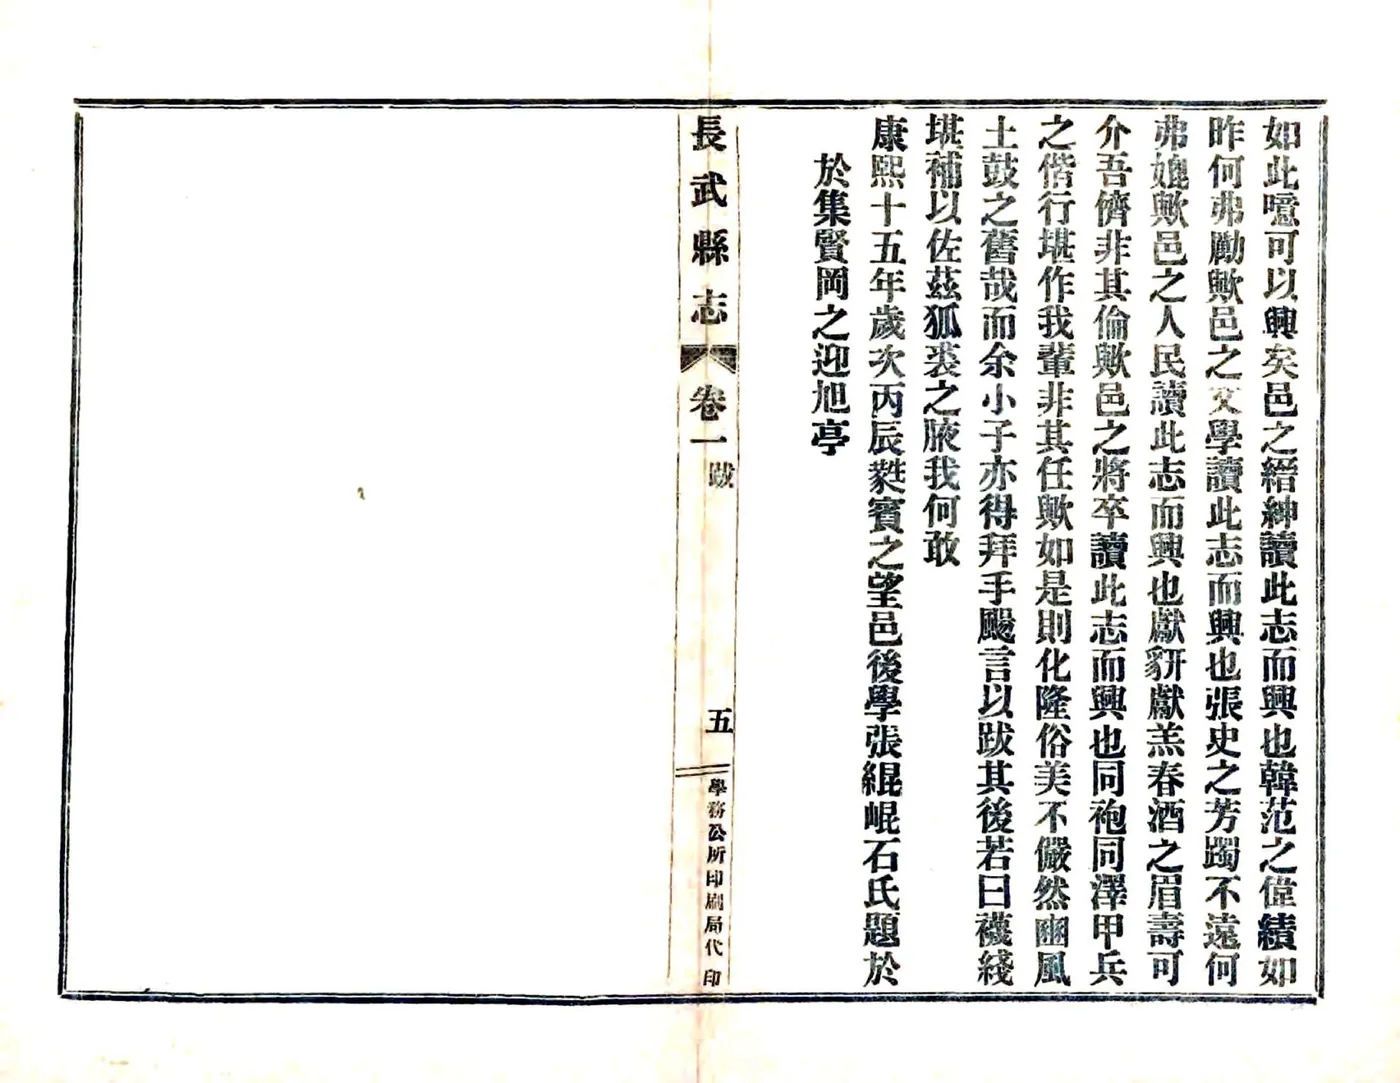 如此噫可以興矣邑之縉紳讀此志而興也韓范之偉績如
昨何弗勵歟邑之文學讀此志而興也張史之芳躅不遠何
弗媿歟邑之人民讀此志而興也獻豜獻羔春酒之眉壽可
介吾儕非其倫歟邑之將卒讀此志而興也同袍同澤甲兵
之偕行堪作我輩非其任歟如是則化隆俗美不儼然豳風
土鼓之舊哉而余小子亦得拜手颺言以跋其後若曰襪綫
堪補以佐茲狐裘之腋我何敢
康熙十五年歲次丙辰蕤賓之望邑後學張緄崐石氏題於
於集賢岡之迎旭亭
長武縣志
卷一
跋
五
學務公所印刷局代印